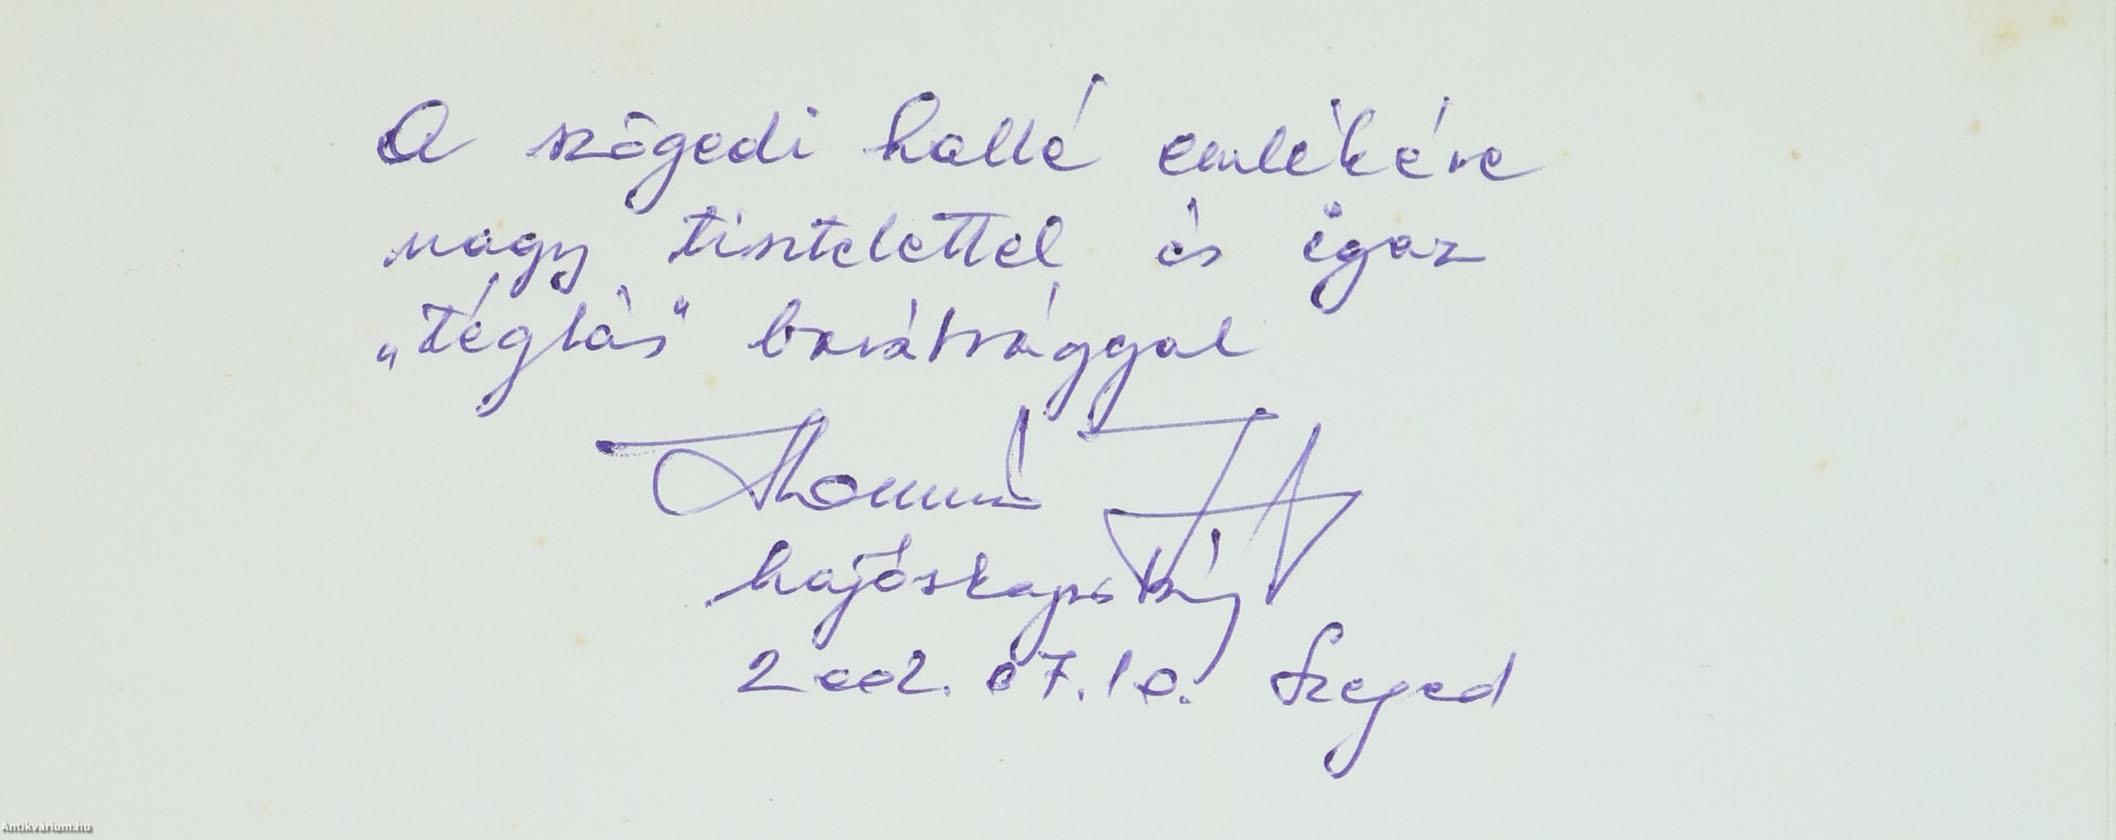 A szögedi hallé emlékére
nagy tisztelettel és igaz
„téglás" barátsággal
hajóskapitány
2002. 07. 10. Szeged
Antikvárium.hu